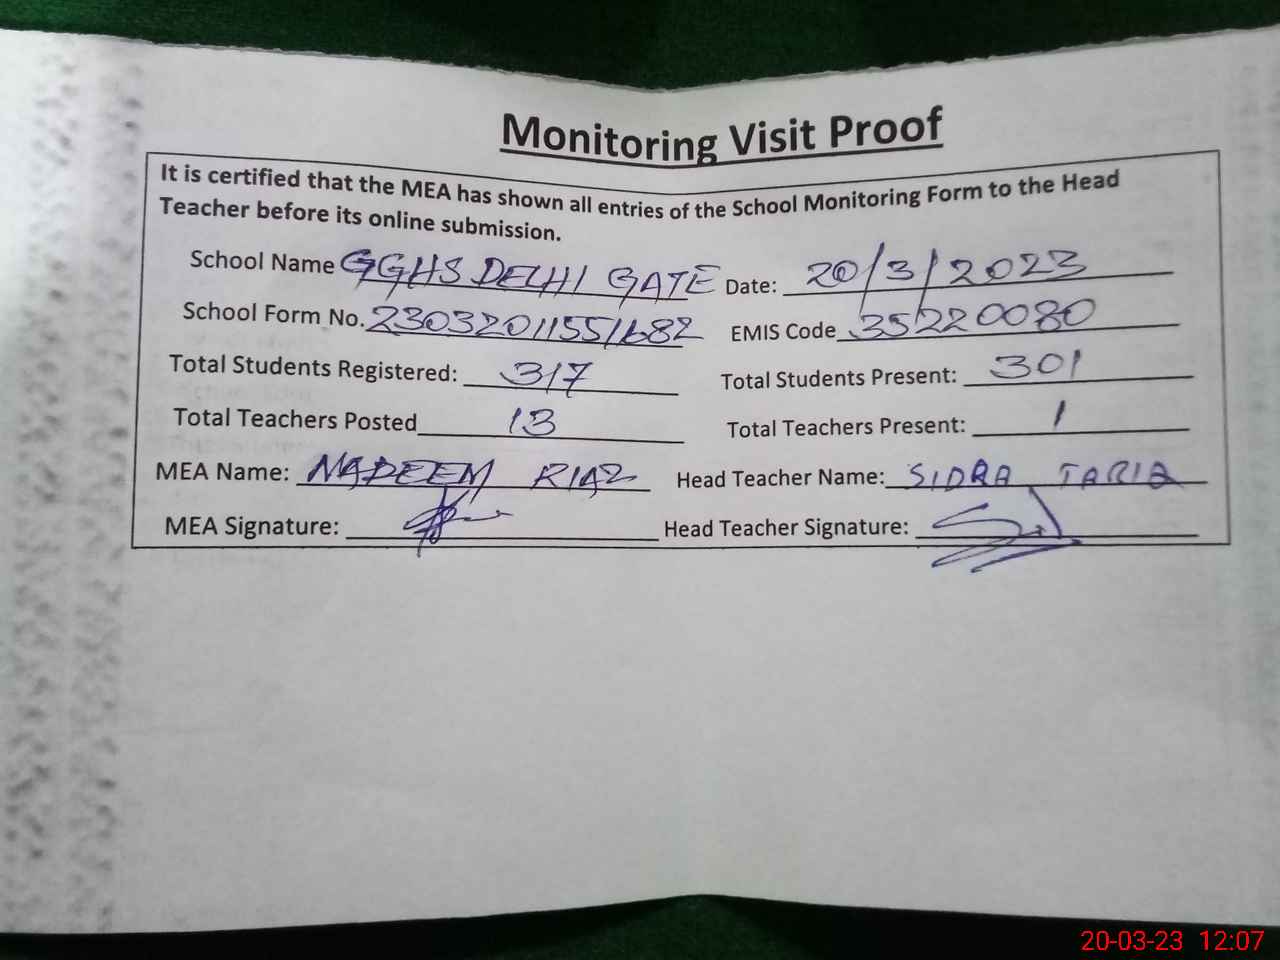 Monitoring Visit Proof
It is certified that the MEA has shown all entries of the School Monitoring Form to the Head
Teacher before its online submission.
School Name GGHS DELHI GATE Date: 20/3/2023
School Form No. 23032011551682 EMIS Code 35220080
Total Students Registered: 317 Total Students Present: 301
Total Teachers Posted 13 Total Teachers Present: 1
MEA Name: NADEEM RIAZ Head Teacher Name: SIDRA TARIQ
MEA Signature: Head Teacher Signature:
20-03-23 12:07